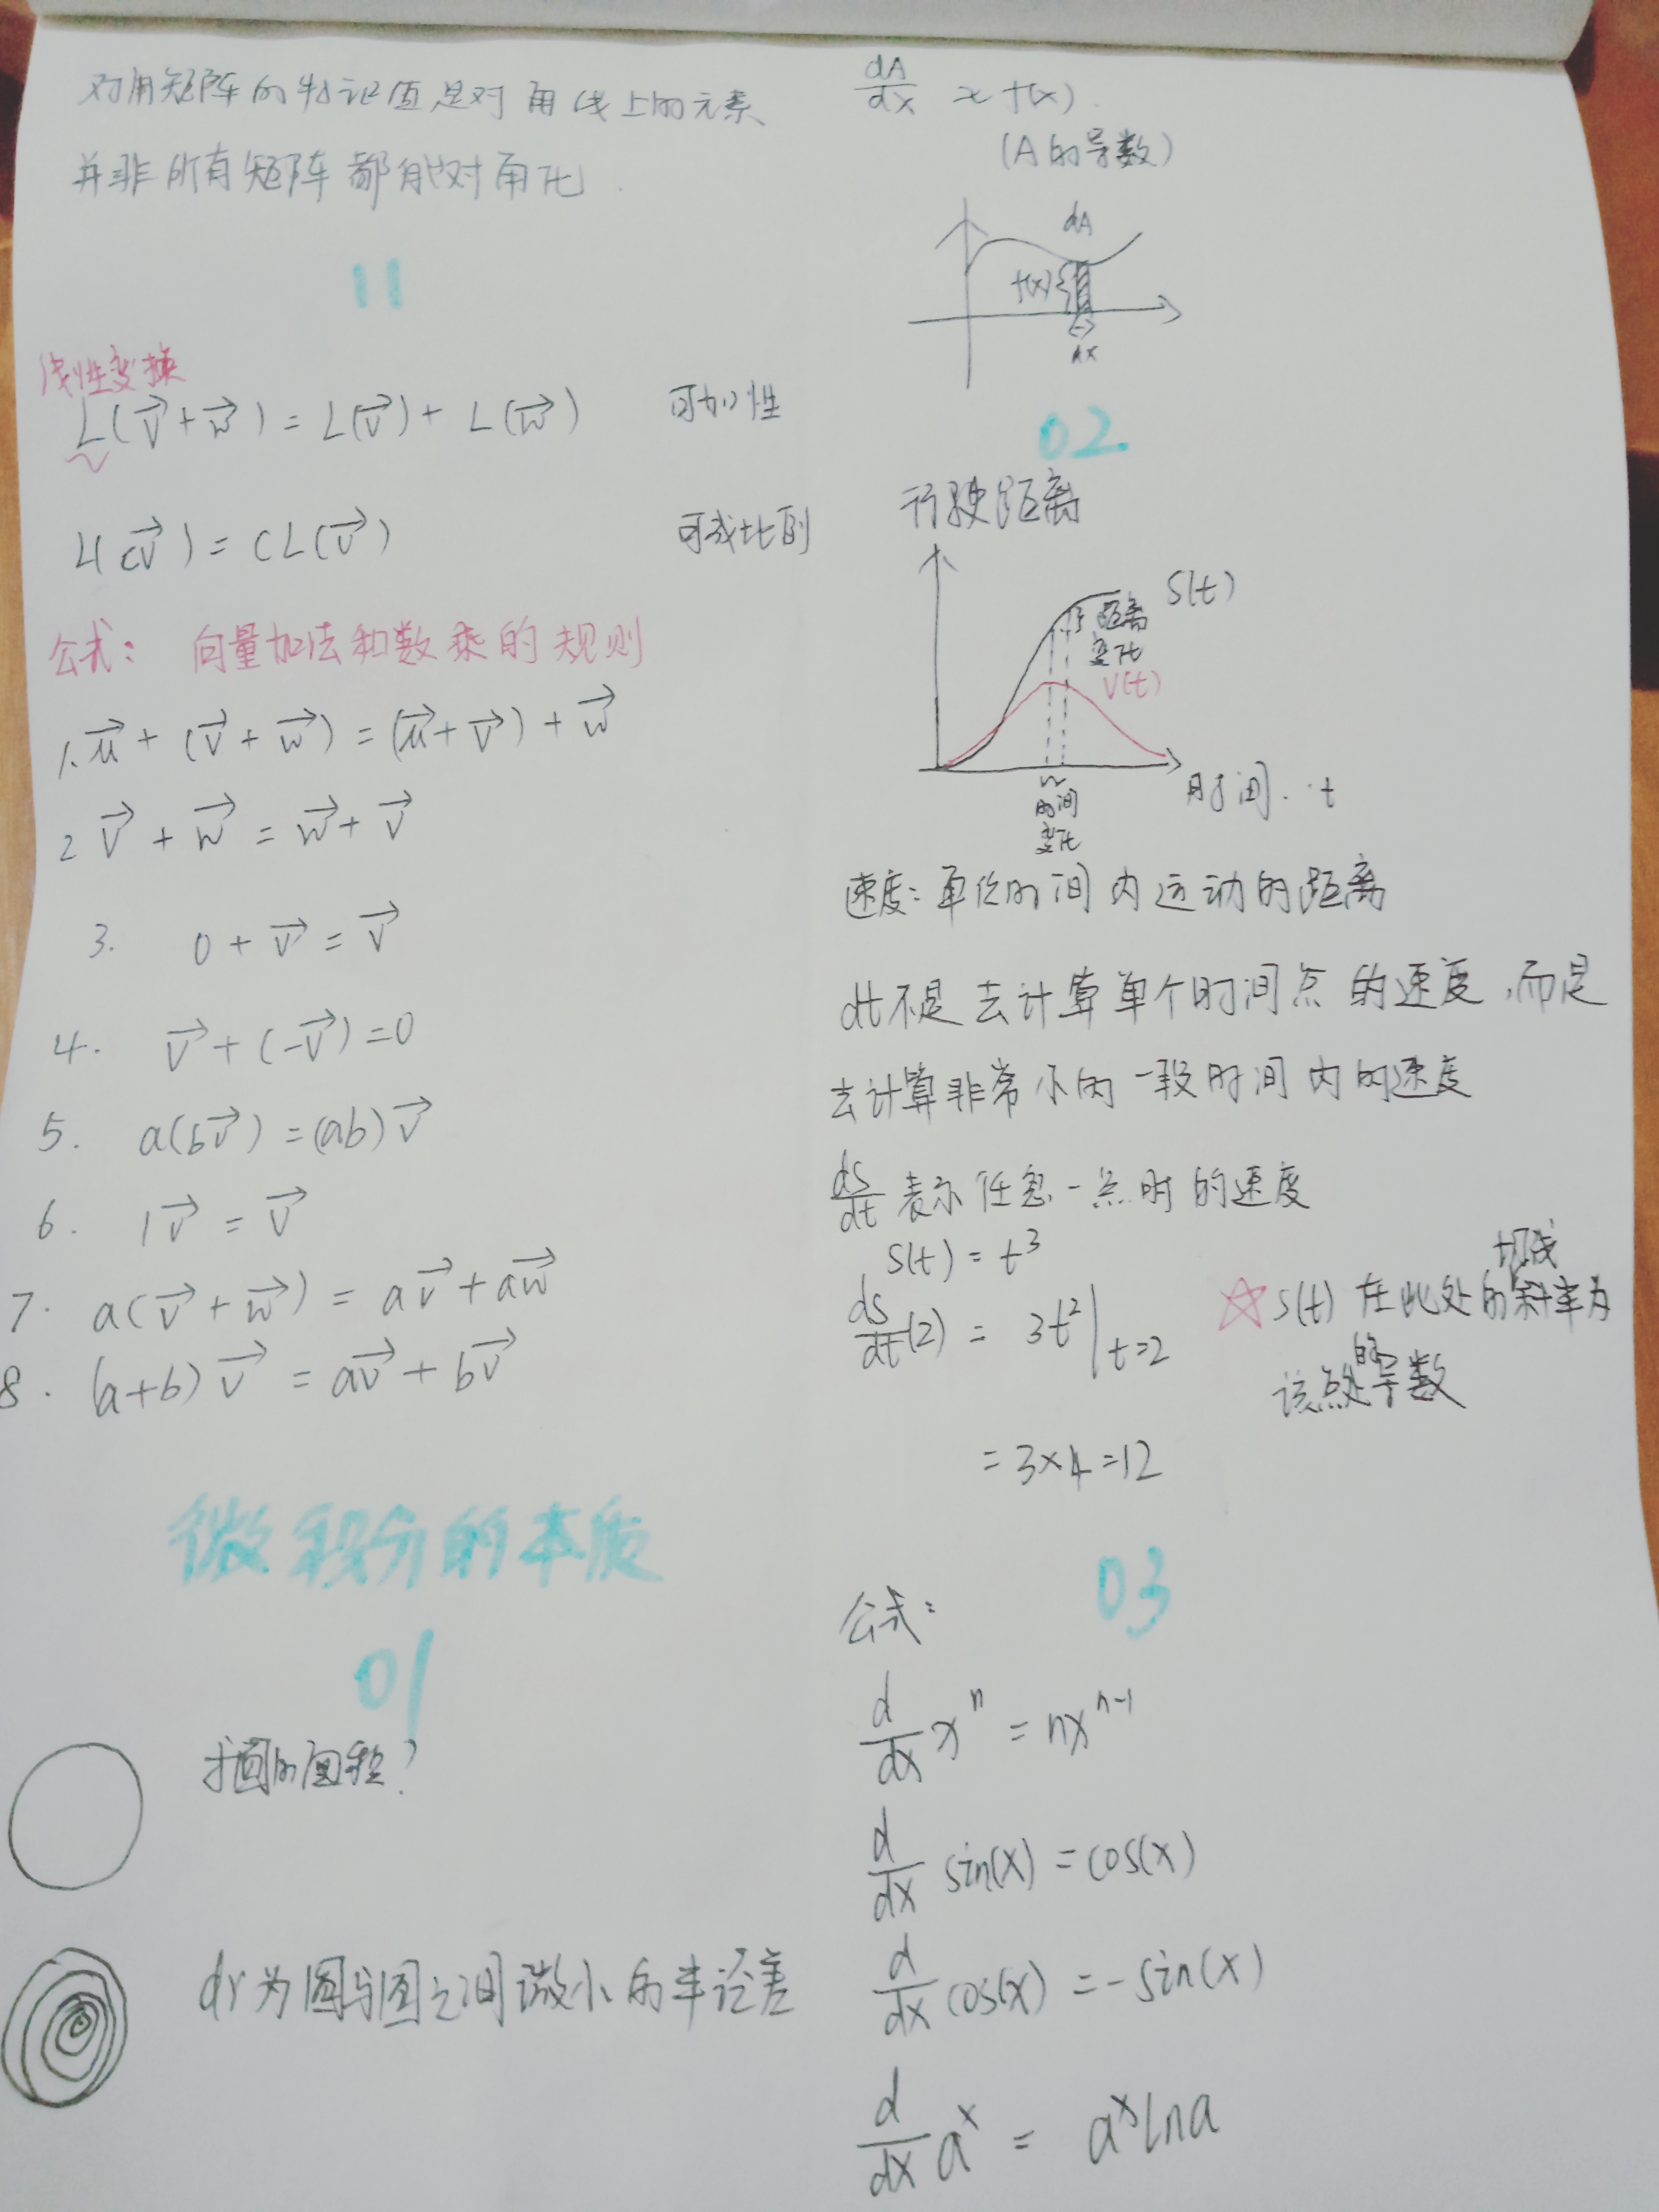 对角矩阵的特征值是对角线上的元素
并非所有矩阵都能对角化.
11
线性变换
L(v⃗+w⃗)=L(v⃗)+L(w⃗) 可加性
L(cv⃗)=cL(v⃗) 可成比例
公式: 向量加法和数乘的规则
1. u⃗+(v⃗+w⃗)=(u⃗+v⃗)+w⃗
2 v⃗+w⃗=w⃗+v⃗
3. 0+v⃗=v⃗
4. v⃗+(-v⃗)=0
5. a(bv⃗)=(ab)v⃗
6. 1v⃗=v⃗
7. a(v⃗+w⃗)=av⃗+aw⃗
8. (a+b)v⃗=av⃗+bv⃗
微积分的本质
01
求圆的面积?
dr为圆与圆之间微小的半径差
dA/dx ≈ f(x).
(A的导数)
dA
f(x)
dx
02
行驶距离
S(t)
距离
变化
V(t)
时间. t
时间
变化
速度:单位时间内运动的距离
dt不是去计算单个时间点的速度,而是
去计算非常小的一段时间内的速度
ds/dt 表示任意一点时的速度
S(t)=t³
ds/dt(2) = 3t²|t=2
=3×4=12
☆S(t)在此处的切线斜率为
该点处的导数
03
公式:
d/dx xⁿ = nxⁿ⁻¹
d/dx sin(x)=cos(x)
d/dx cos(x)=-sin(x)
d/dx aˣ = aˣlna